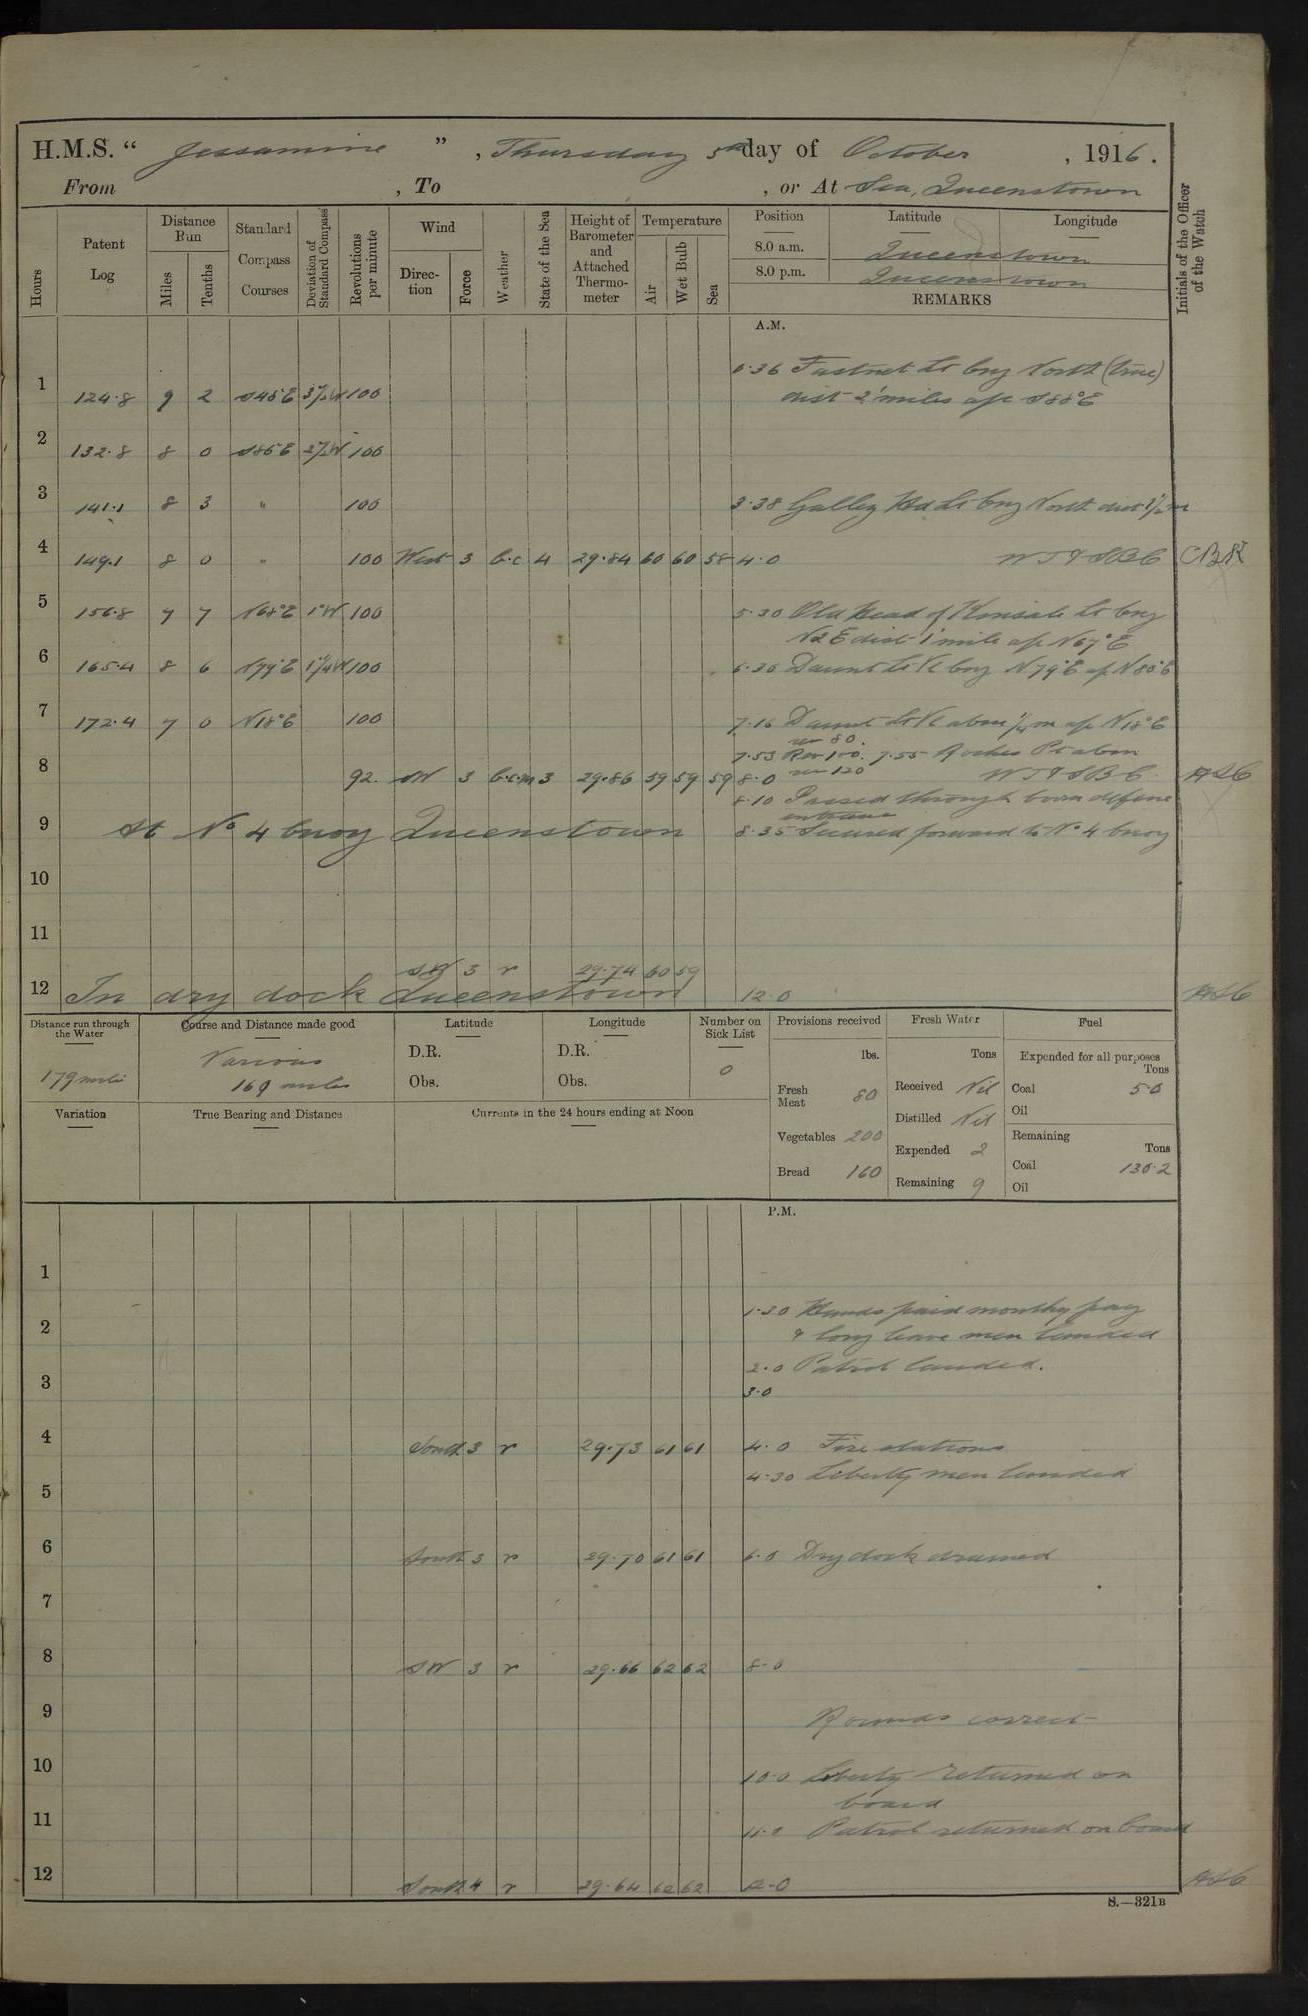 H.M.S. “ Jessamine ” , Thursday 5th day of October , 1916 .
From , To , or At Sea, Queenstown
Hours
Patent Log
Distance Run
Miles
Tenths
Standard Compass Courses
Deviation of Standard Compass
Revolutions per minute
Wind
Direction
Force
Weather
State of the Sea
Height of Barometer and Attached Thermometer
Temperature
Air
Wet Bulb
Sea
Position Latitude Longitude
8.0 a.m. Queenstown
8.0 p.m. Queenstown
REMARKS
Initials of the Officer of the Watch
A.M.
0.36 Fastnet Lt brg North (true)
1 124.8 9 2 S45°E 100 dist 2' miles a/c S88°E
2 132.8 8 0 S86°E 100
3 141.1 8 3 " 100 3.38 Galley Hd Lt brg North dist 1½ m
4 149.1 8 0 " 100 West 3 b.c 4 29.84 60 60 58 4.0 W T & S B C CBK
5 156.8 7 7 N68°E 1°W 100 5.30 Old Head of Kinsale Lt brg
N2E dist 1 mile a/c N67°E
6 165.4 8 6 N79°E 100 6.36 Daunt Lt V brg N79°E a/c N80°E
7 172.4 7 0 N18°E 100 7.16 Daunt Lt V abm ¼ m a/c N18°E
rev 80.
7.53 Rev 100. 7.55 Roches Pt abm
8 92 SW 3 b.c.m 3 29.86 59 59 59 8.0 rev 120 W T & S B C
8.10 Passed through boom defence
entrance
9 At No 4 buoy Queenstown 8.35 Secured forward to No 4 buoy
10
11
SW 3 r 29.74 60 59
12 In dry dock Queenstown 12.0
Distance run through the Water
179 miles
Course and Distance made good
Various
169 miles
Latitude
D.R.
Obs.
Longitude
D.R.
Obs.
Number on Sick List
0
Variation
True Bearing and Distance
Currents in the 24 hours ending at Noon
Provisions received
lbs.
Fresh Meat 80
Vegetables 200
Bread 160
Fresh Water
Tons
Received Nil
Distilled Nil
Expended 2
Remaining 9
Fuel
Expended for all purposes
Tons
Coal 5.0
Oil
Remaining
Tons
Coal 130.2
Oil
P.M.
1
1.30 Hands paid monthly pay
2 & long leave men landed
2.0 Patrol landed.
3 3.0
4 South 3 r 29.73 61 61 4.0 Fire stations
4.30 Liberty men landed
5
6 South 3 r 29.70 61 61 6.0 Dry dock drained
7
8 SW 3 r 29.66 62 62 8.0
9 Rounds correct
10 10.0 Liberty returned on
board
11 11.0 Patrol returned on board
12 South 4 r 29.64 62 62 12.0
S.—321B